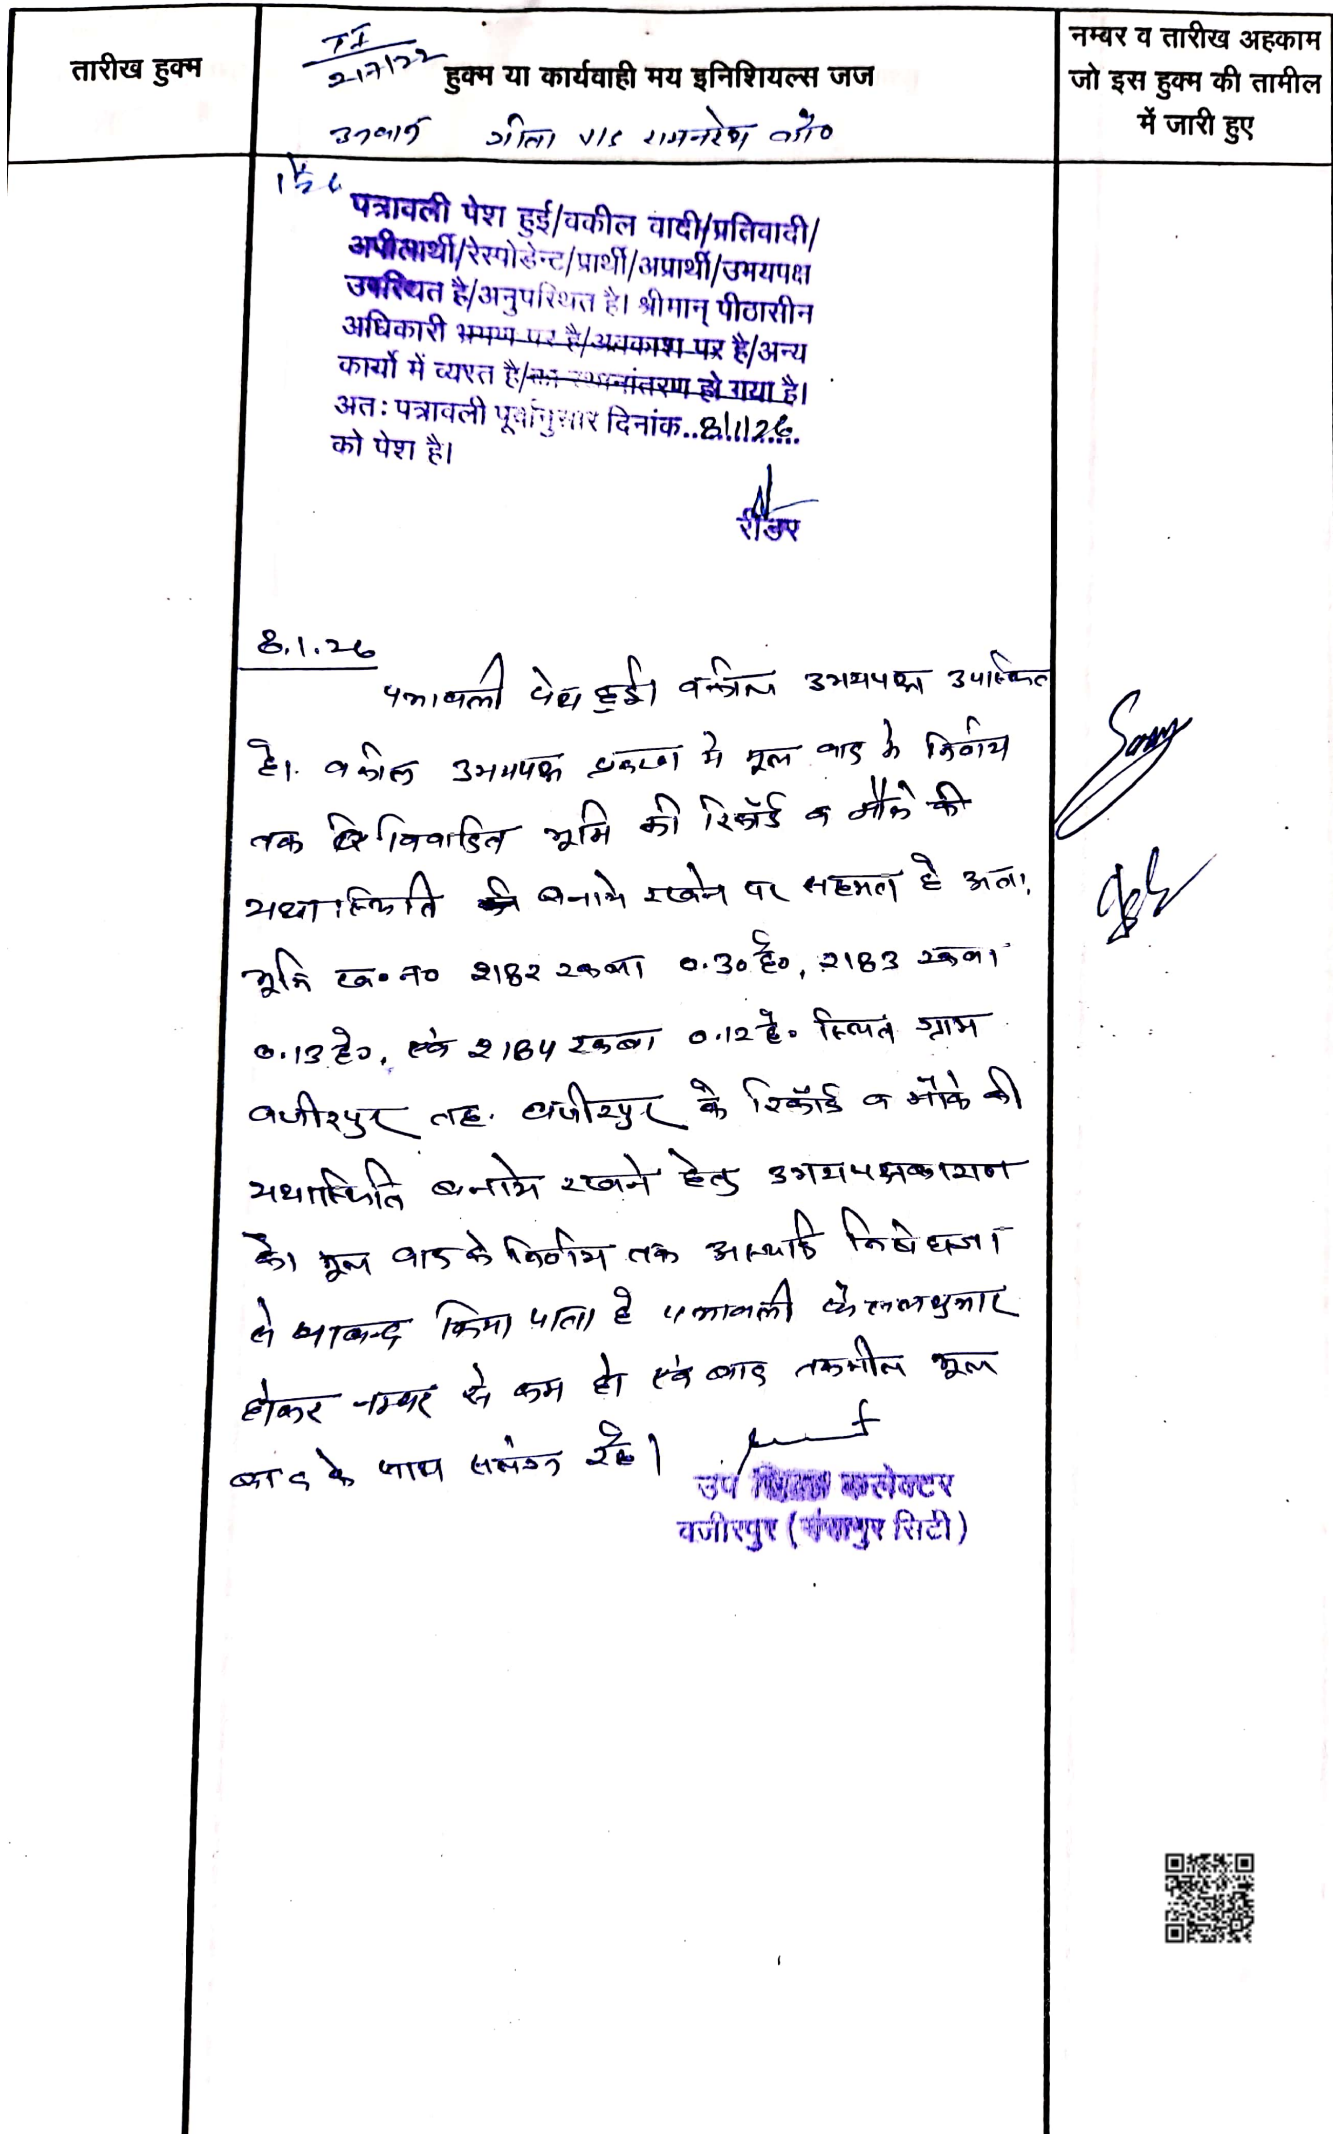 तारीख हुक्म
TI
217/22
हुक्म या कार्यवाही मय इनिशियल्स जज
उनवान गीता v/s रामनरेश वगै०
नम्बर व तारीख अहकाम
जो इस हुक्म की तामील
में जारी हुए
पत्रावली पेश हुई/वकील वादी/प्रतिवादी/
अपीलार्थी/रेस्पोडेन्ट/प्रार्थी/अप्रार्थी/उभयपक्ष
उपस्थित है/अनुपस्थित है। श्रीमान् पीठासीन
अधिकारी भ्रमण पर है/अवकाश पर है/अन्य
कार्यो में व्यस्त है/का स्थानांतरण हो गया है।
अतः पत्रावली पूर्वानुसार दिनांक..8/1/26....
को पेश है।
रीडर
8.1.26
पत्रावली पेश हुई। वकील उभयपक्ष उपस्थित
है। वकील उभयपक्ष प्रकरण मे मूल वाद के निर्णय
तक विवादित भूमि की रिकॉर्ड व मौके की
यथास्थिति बनाये रखने पर सहमत है अतः
भूमि ख०न० 2182 रकबा 0.30 है०, 2183 रकबा
0.13 है०, एवं 2184 रकबा 0.12 है० स्थित ग्राम
वजीरपुर तह. वजीरपुर के रिकॉर्ड व मौके की
यथास्थिति बनाये रखने हेतु उभयपक्षकारान
को मूल वाद के निर्णय तक अस्थाई निषेधाज्ञा
से पाबन्द किया जाता है पत्रावली फैसलशुमार
होकर नम्बर से कम हो एवं बाद तकमील मूल
वाद के साथ संलग्न रहे।
उप जिला कलेक्टर
वजीरपुर (गंगापुर सिटी)